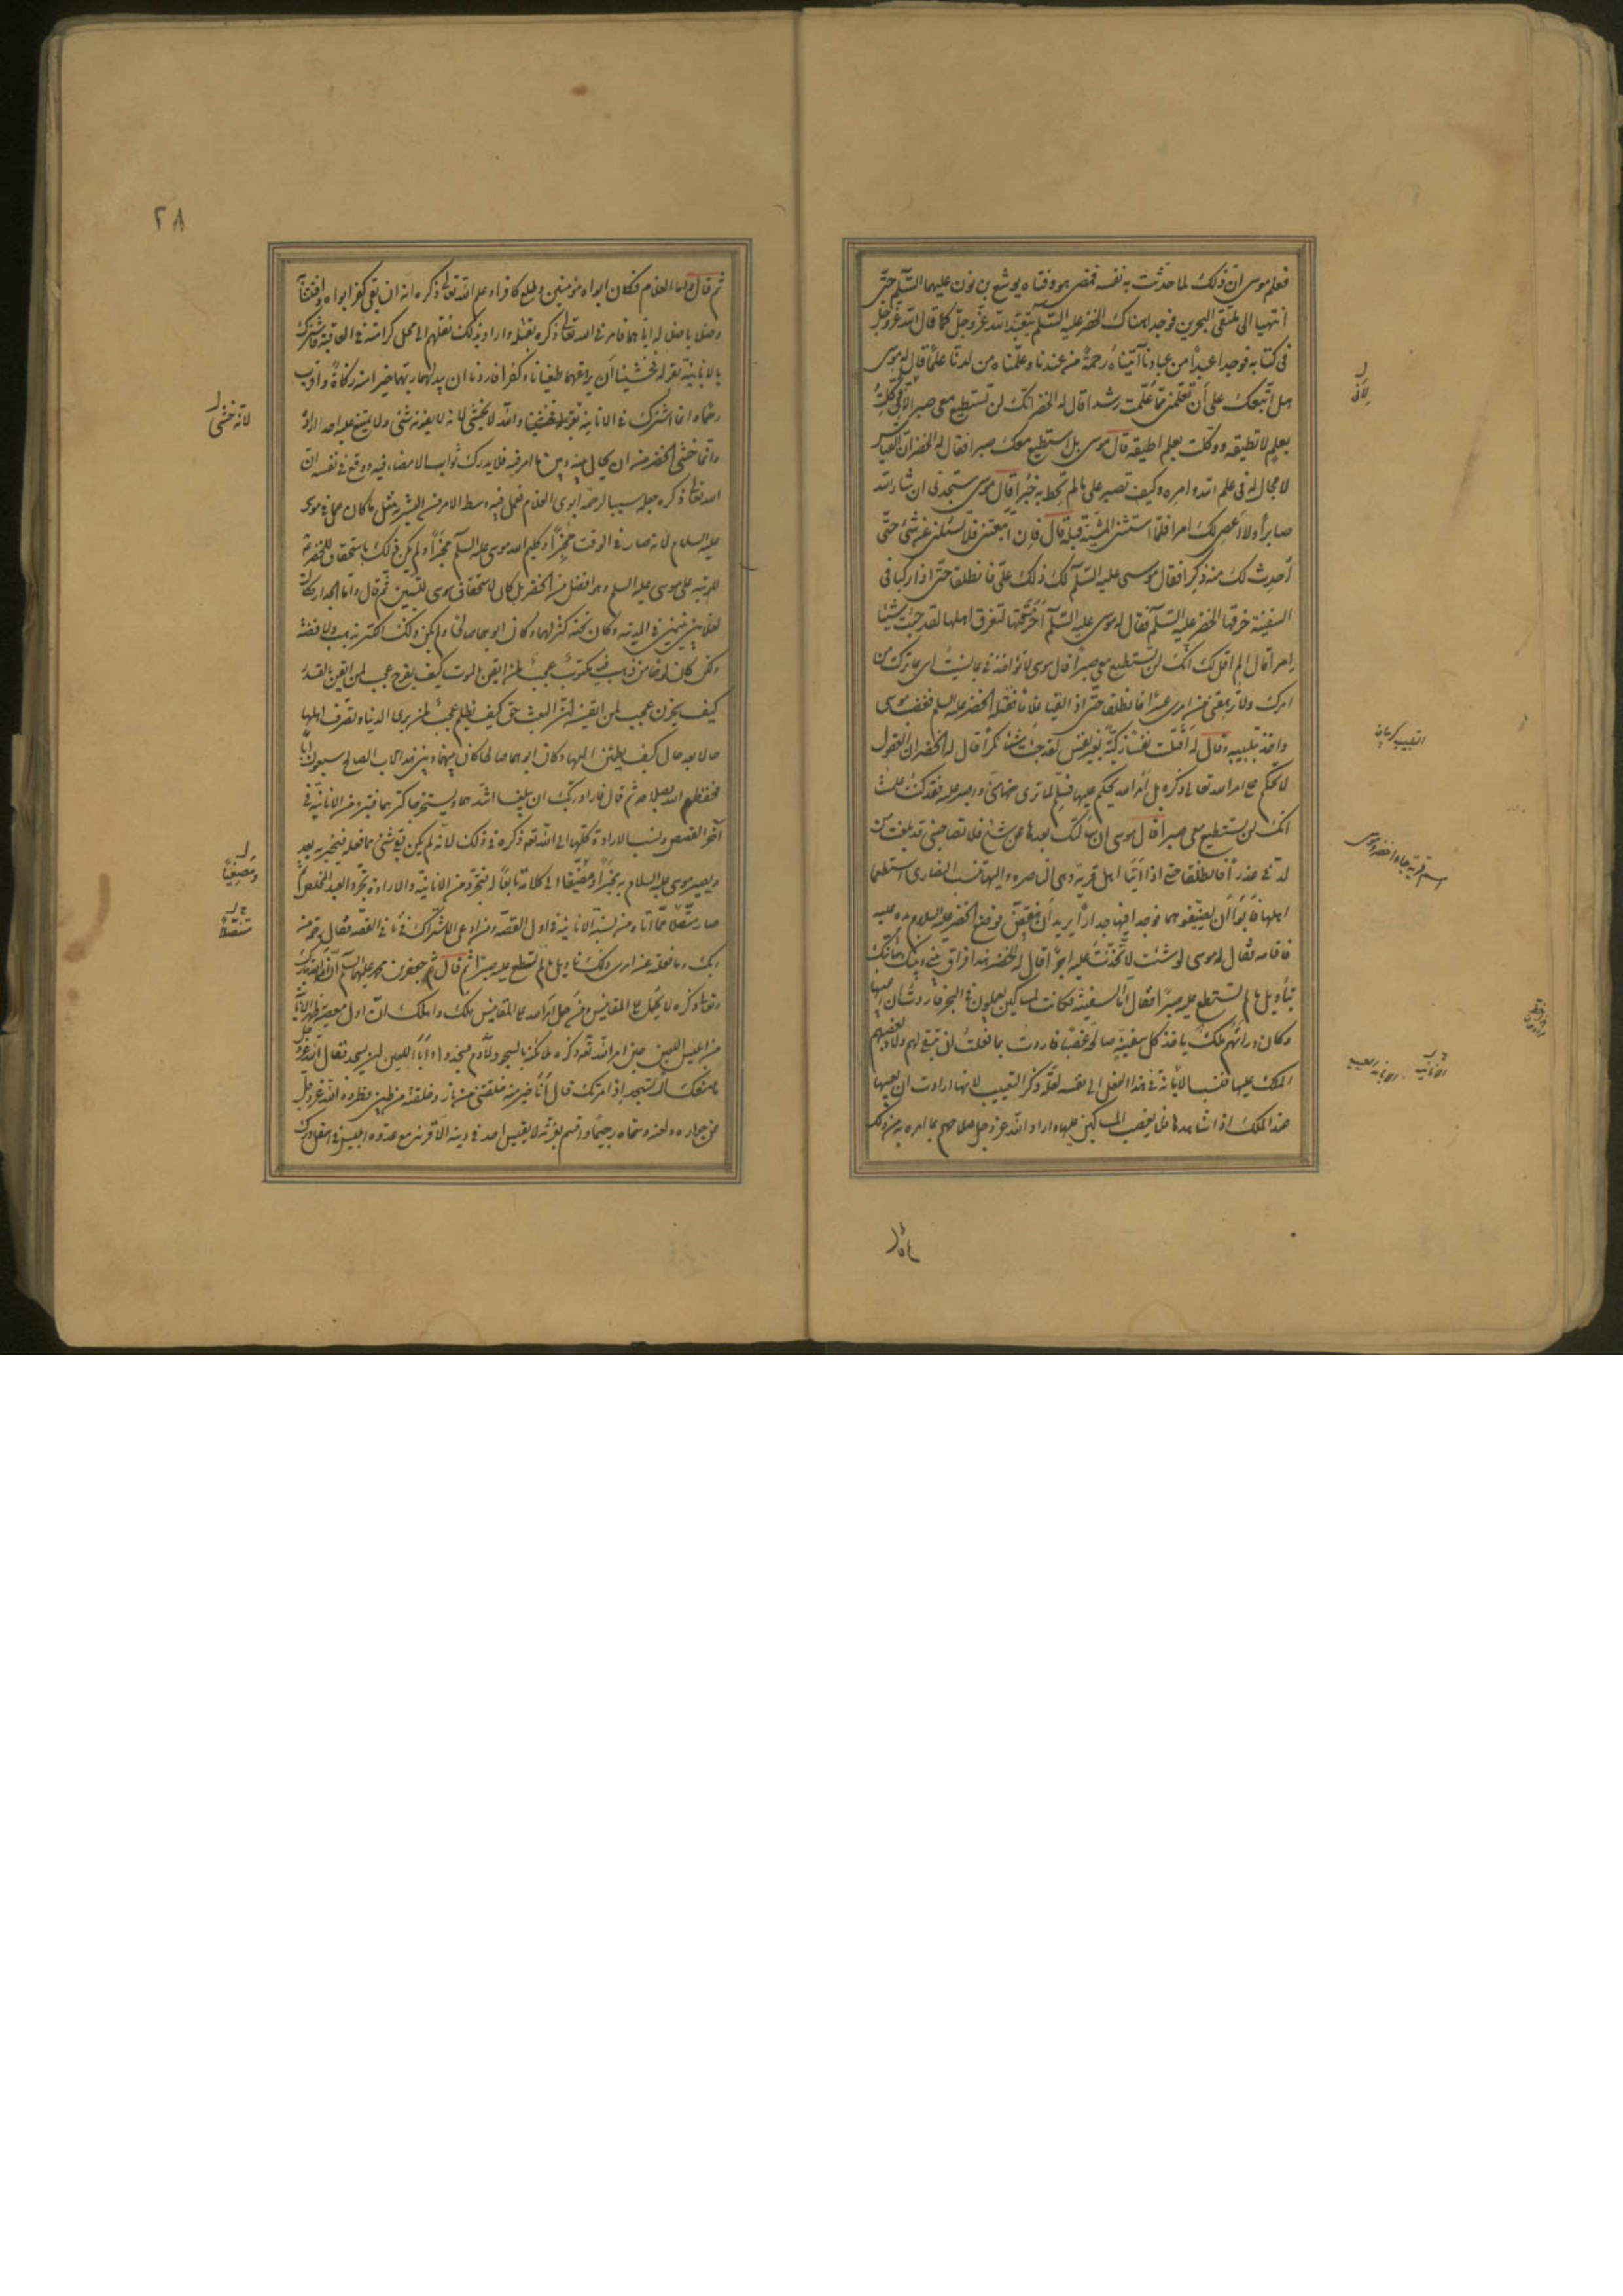 فعلم موسى ان ذلك لما حدثت به نفسه فمضى هو وفتاه يوشع بن نون عليهما السّلم حتّى
انتهيا الى ملتقى البحرين فوجدا هناك الخضر عليه السّلم يتعبّد الله عزّ وجلّ كما قال الله عزّ وجلّ
فى كتابه فوجدا عبداً من عبادنا آتيناه رحمةً من عندنا وعلّمناه من لدنّا علماً قال له موسى
هل اتّبعك على أن تعلّمن ممّا عُلّمت رشدا قال له الخضر انّك لن تستطيع معى صبرا لأنّى وكّلت
بعلم لا تطيقه ووكّلت بعلم لا اطيقه قال موسى بل استطيع معك صبرا فقال له الخضر انّ القياس
لا مجال له فى علم الله وامره وكيف تصبر على ما لم تحط به خُبراً قال موسى ستجدنى ان شاء الله
صابراً ولا أعصى لك امرا فلمّا استثنى المشيّة قبله قال فإن اتّبعتنى فلا تسئلنى عن شئ حتّى
اُحدِث لك منه ذكرا فقال موسى عليه السّلم لك ذلك علىّ فانطلقا حتّى اذا ركبا فى
السفينة خرقها الخضر عليه السّلم فقال له موسى عليه السّلم أخرقتها لتغرق اهلها لقد جئت شيئا
إمراً قال الم اقل لك انّك لن تستطيع معى صبراً قال موسى لا تؤاخذنى بما نسيت اى بما تركت من
امرك ولا ترهقنى من امرى عسراً فانطلقا حتّى اذا لقيا غلاماً فقتله الخضر عليه السلم فغضب موسى
واخذ بتلبيبه وقال له أقتلت نفساً زكيّة بغير نفس لقد جئت شيئا نكراً قال له الخضر ان العقول
لا تحكم على امر الله تعالى ذكره بل أمر الله يحكم عليها فسلّم لما ترى منّى واصبر عليه فقد كنت علمت
انّك لن تستطيع معى صبراً قال موسى ان سألتك عن شئ بعدها فلا تصاحبنى قد بلغت من
لدنّى عذراً فانطلقا حتى اذا أتيا اهل قرية وهى الناصره واليها تنسب النصارى استطعما
اهلها فأبَوا أن يضيّفوهما فوجدا فيها جداراً يريد أن ينقضّ فوضع الخضر عليه السلام يده عليه
فاقامه فقال له موسى لو شئت لاتّخذت عليه اجراً قال له الخضر هذا فراق بينى وبينك سأنبّئك
بتأويل ما لم تستطع عليه صبراً فقال أمّا السفينة فكانت لمساكين يعملون فى البحر فاردت أن اعيبها
وكان وراءهم ملك يأخذ كل سفينة صالحة غصبا فاردت بما فعلت ان تبقى لهم ولا يغصبهم
الملك عليها فنسب الانانيّة فى هذا الفعل الى نفسه لعلّة ذكر التعييب لانها اراد ان يعيبها
عند الملك اذا شاهدها فلا يغصب المساكين عليها واراد الله عز وجل صلاحهم بما امره به من ذلك
لأنّى
اسم قرية جاءها خضر وموسى
٢٨
ثم قال وامّا الغلام فكان ابواه مؤمنين وطبع كافراً وعلم الله تعالى ذكره انه ان بقى كفر ابواه وافتتنا
به وضلّا باضلاله ايّاهما فامرنى الله تعالى ذكره بقتله واراد بذلك نقلهم الى محل كرامته فى العاقبة فاشترك
بالانانية بقوله فخشينا أن يرهقهما طغيانا وكفرا فاردنا ان يبدلهما ربّهما خيرا منه زكاةً واقرب
رحماً وانما اشترك فى الانانية لانه خشى والله لا يخشى لانه لا يفوته شئ ولا يمتنع عليه احد اراده
وانّما خشى الخضر من ان يحال بينه وبين ما امر فيه فلا يدرك ثواب الامضاء فيه ووقع فى نفسه ان
الله تعالى ذكره جعله سببا لرحمة ابوى الغلام فعمل فيه وسط الامر من البشرية مثل ما كان عمل فى موسى
عليه السلام لانه صار فى الوقت مُخبِراً وكليم الله موسى عليه السّلم مخبَراً ولم يكن ذلك باستحقاق للخضر
الرتبه على موسى عليه السلم وهو افضل من الخضر بل كان لاستحقاق موسى للتبيين ثم قال وامّا الجدار فكان
لغلامين يتيمين فى المدينه وكان تحته كنز لهما وكان ابوهما صالحا ولم يكن ذلك الكنز بذهب ولا فضّة
ولكن كان لوحا من ذهب فيه مكتوب عجبٌ لمن ايقن بالموت كيف يفرح عجب لمن ايقن بالقدر
كيف يحزن عجب لمن ايقن ان البعث حق كيف يظلم عجبٌ لمن يرى الدنيا وتصرّف اهلها
حالا بعد حال كيف يطمئن اليها وكان ابوهما صالحا كان بينهما وبين هذا الاب الصالح سبعون اباً
فحفظهما الله بصلاحه ثم قال فاراد ربّك ان يبلغا اشدّهما ويستخرجا كنزهما فتبرّء من الانانيّة فى
آخر القصص ونسب الارادة كلّها الى الله تعالى ذكره فى ذلك لانّه لم يكن بقى شئ مما فعله فيخبر به بعد
ويصير موسى عليه السلام به مخبَراً ومصغياً الى كلامه تابعاً له فتجرّد من الانانيّة والارادة تجرّد العبد المخلص ثم
صار متنصّلا ممّا أتاه من نسبة الانانية فى اول القصّه ومن ادعاء الاشتراك فى ثانى القصّه فقال رحمة من
ربّك وما فعلته عن امرى ذلك تأويل ما لم تسطع عليه صبراً ثم قال جعفر بن محمد عليهما السّلم انّ امر الله تبارك
وتعالى ذكره لا يُحمل على المقاييس ومن حمل امر الله على المقاييس هلك واهلك انّ اول معصية ظهرت الانانيّة
من ابليس اللعين حين امر الله تعالى ذكره ملائكته بالسجود لآدم فسجدوا وأبى ابليس اللعين ان يسجد فقال الله عز وجل
ما منعك ألّا تسجد إذ امرتك قال أنا خير منه خلقتنى من نار وخلقته من طين فطرده الله عز وجل
عن جواره ولعنه وسمّاه رجيماً واقسم بعزّته لا يقيس احد فى دينه الّا قرنه مع عدوّه ابليس فى اسفل درك
لانّه خشى
ومصغياً
متنصّلاً